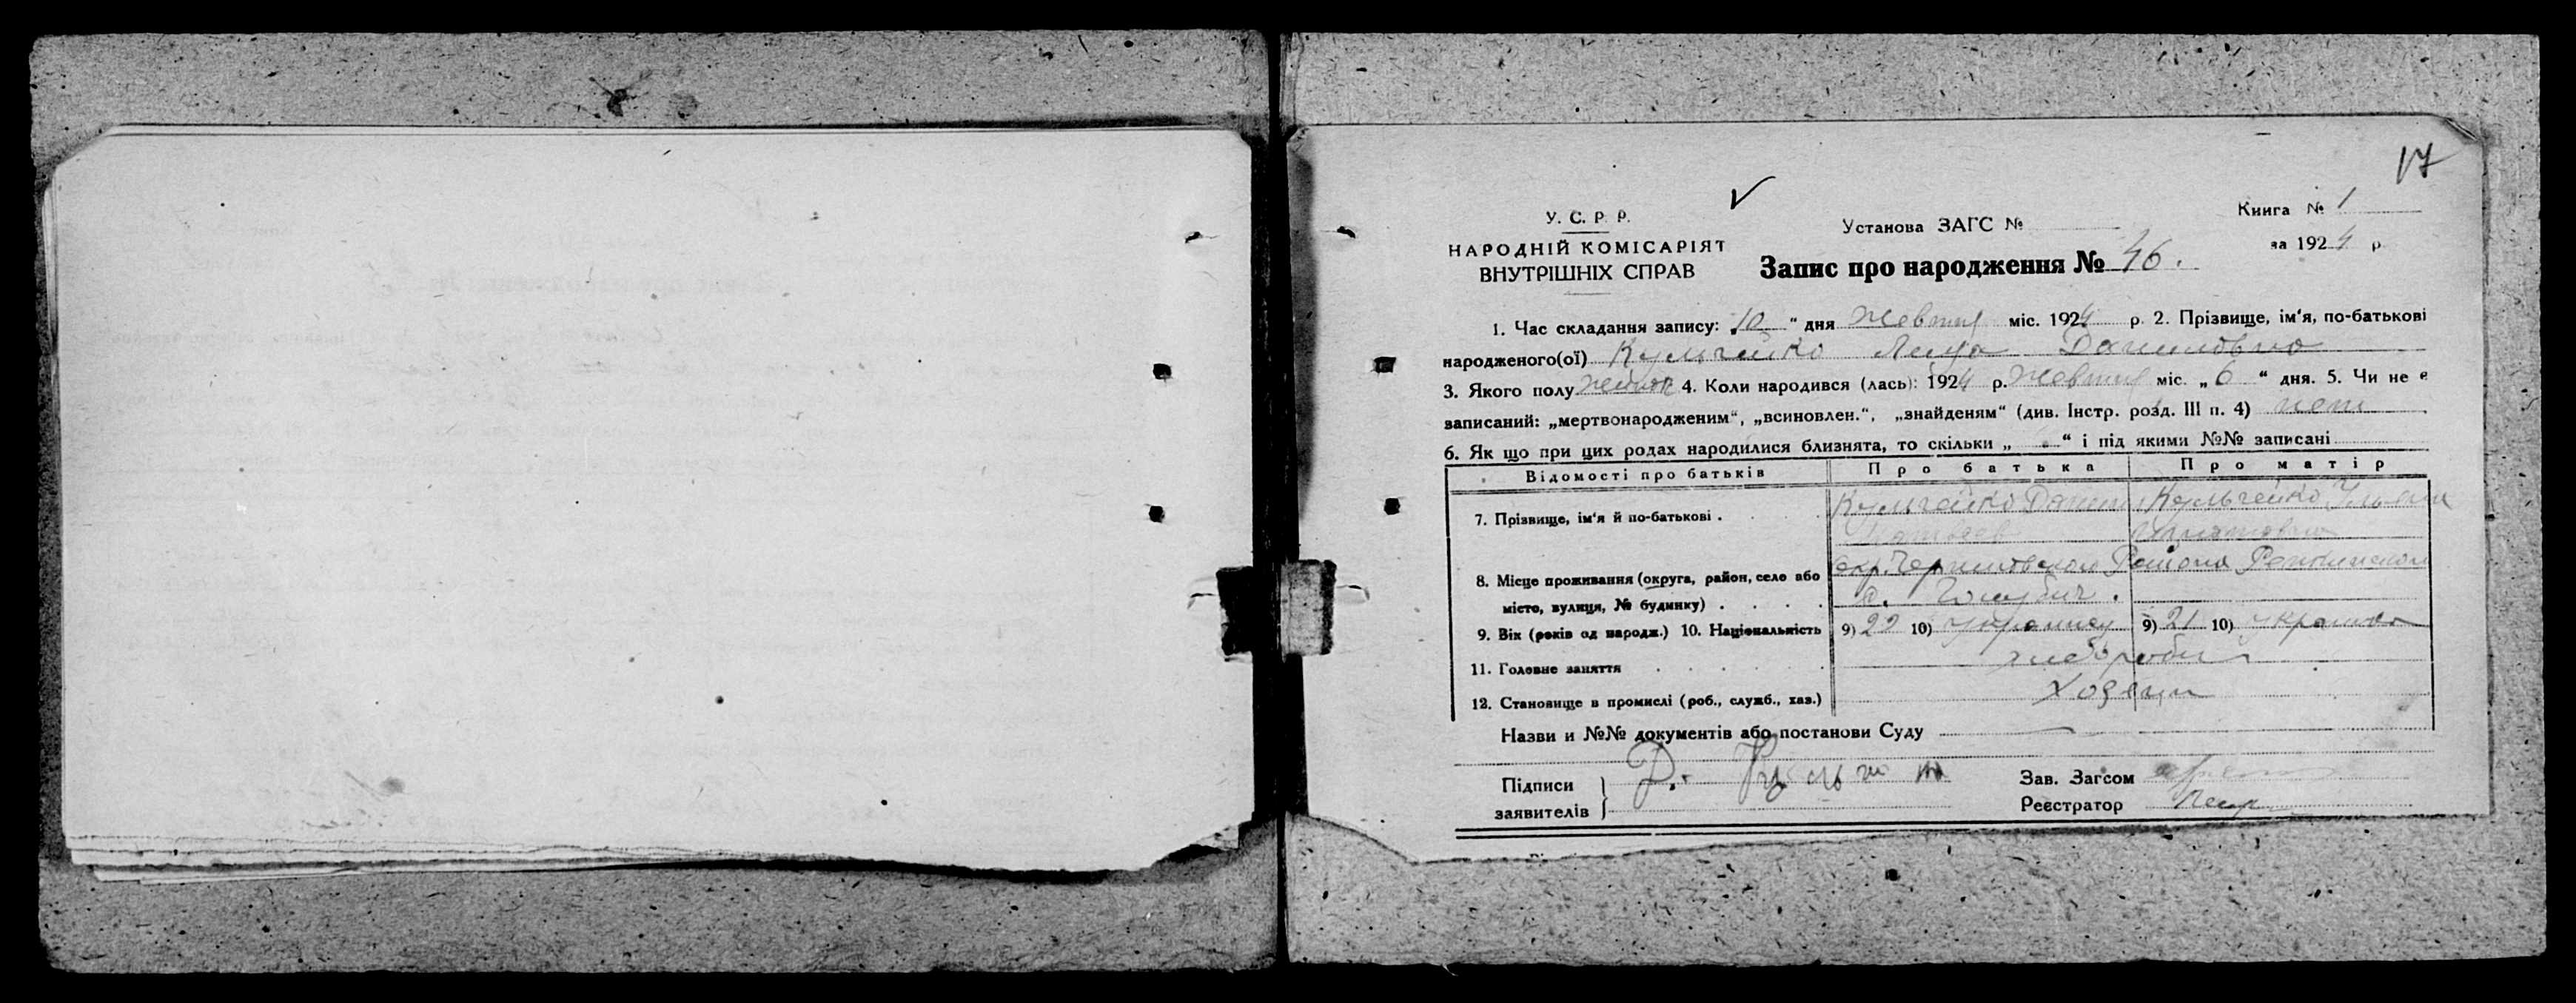 17
У. С. Р. Р.
НАРОДНІЙ КОМІСАРІЯТ
ВНУТРІШНІХ СПРАВ
Установа ЗАГС №
Книга № 1
за 1924 р
Запис про народження № 46.
1. Час складання запису: „10“ дня Жевтня міс. 1924 р. 2. Прізвище, ім'я, по-батькові
народженого(ої) Даниловна
3. Якого полу 4. Коли народився (лась): 1924 р. Жевтня міс. „6“ дня. 5. Чи не є
записаний: „мертвонародженим“, „всиновлен.“, „знайденям“ (див. Інстр. розд. III п. 4) нет
6. Як що при цих родах народилися близнята, то скільки „ “ і під якими №№ записані
Відомості про батьків Про батька Про матір
7. Прізвище, ім'я й по-батькові . Данил
8. Місце проживання (округа, район, село або окр. Черниговского Района Репкинского
місто, вулиця, № будинку) . . . . с. Голубичі.
9. Вік (років од народж.) 10. Національність 9) 22 10) 9) 21 10) украинка
11. Головне заняття . . . . . . хлебороби
12. Становище в промислі (роб., служб., хаз.)
Назви и №№ документів або постанови Суду
Підписи
заявителів
Зав. Загсом
Реєстратор